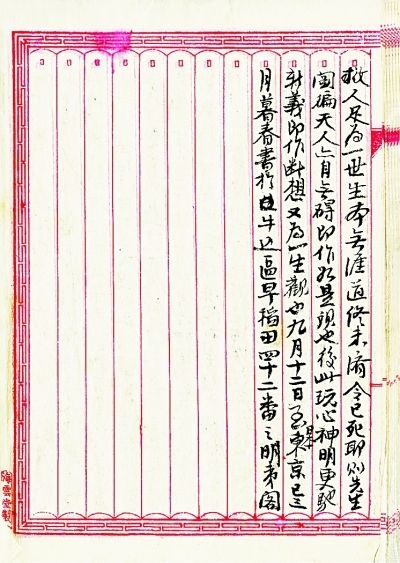 救人足為一世生本無涯道終未濟今已死耶則先生
閱徧天人亦自無碍即作如是觀也後此玩心神明更馳
新義即作斷想又為一生觀也九月十二日至東京已三
月暮春書於牛込區早稻田四十二番之明夷閣